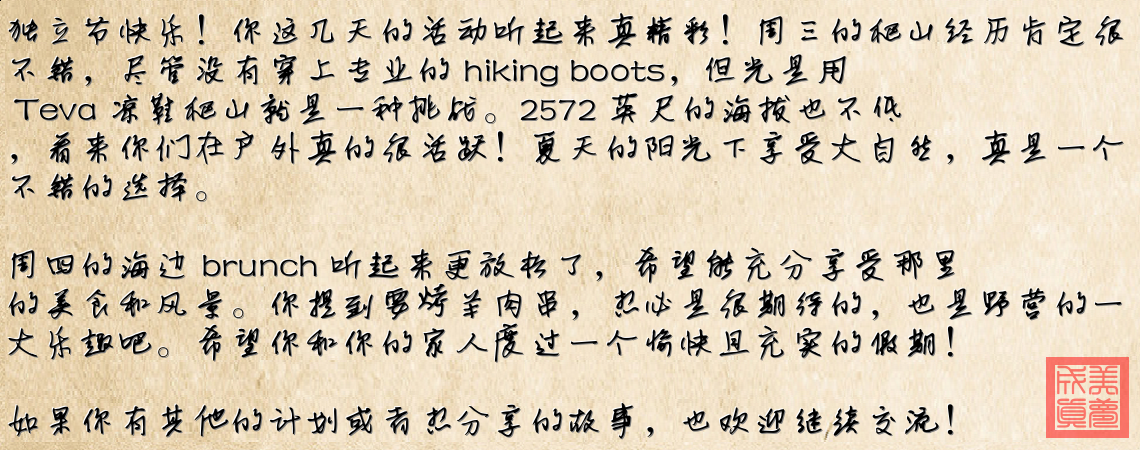 独立节快乐！你这几天的活动听起来真精彩！周三的爬山经历肯定很
不错，尽管没有穿上专业的 hiking boots，但光是用
Teva 凉鞋爬山就是一种挑战。2572 英尺的海拔也不低
，看来你们在户外真的很活跃！夏天的阳光下享受大自然，真是一个
不错的选择。
周四的海边 brunch 听起来更放松了，希望能充分享受那里
的美食和风景。你提到要烤羊肉串，想必是很期待的，也是野营的一
大乐趣吧。希望你和你的家人度过一个愉快且充实的假期！
如果你有其他的计划或者想分享的故事，也欢迎继续交流！
美梦成真